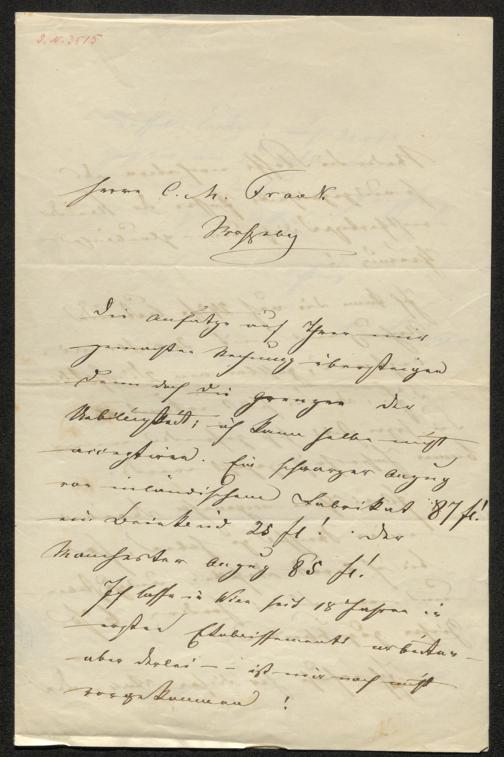 I. N. 3515
Herrn C. M. Frank
Die Ansätze auf Ihrer mir
gemachten Rechnung übersteigen
denn doch die Grenzen der
ich kann selbe nicht
acceptiren. Ein schwarzer Anzug
von inländischem Fabrikat 87 fl!
ein Beinkleid 28 fl! Der
Manchester Anzug 85 fl!
Ich lasse in Wien seit 18 Jahren in
ersten Etablissements arbeiten –
aber derlei – – ist mir noch nicht
vorgekommen!